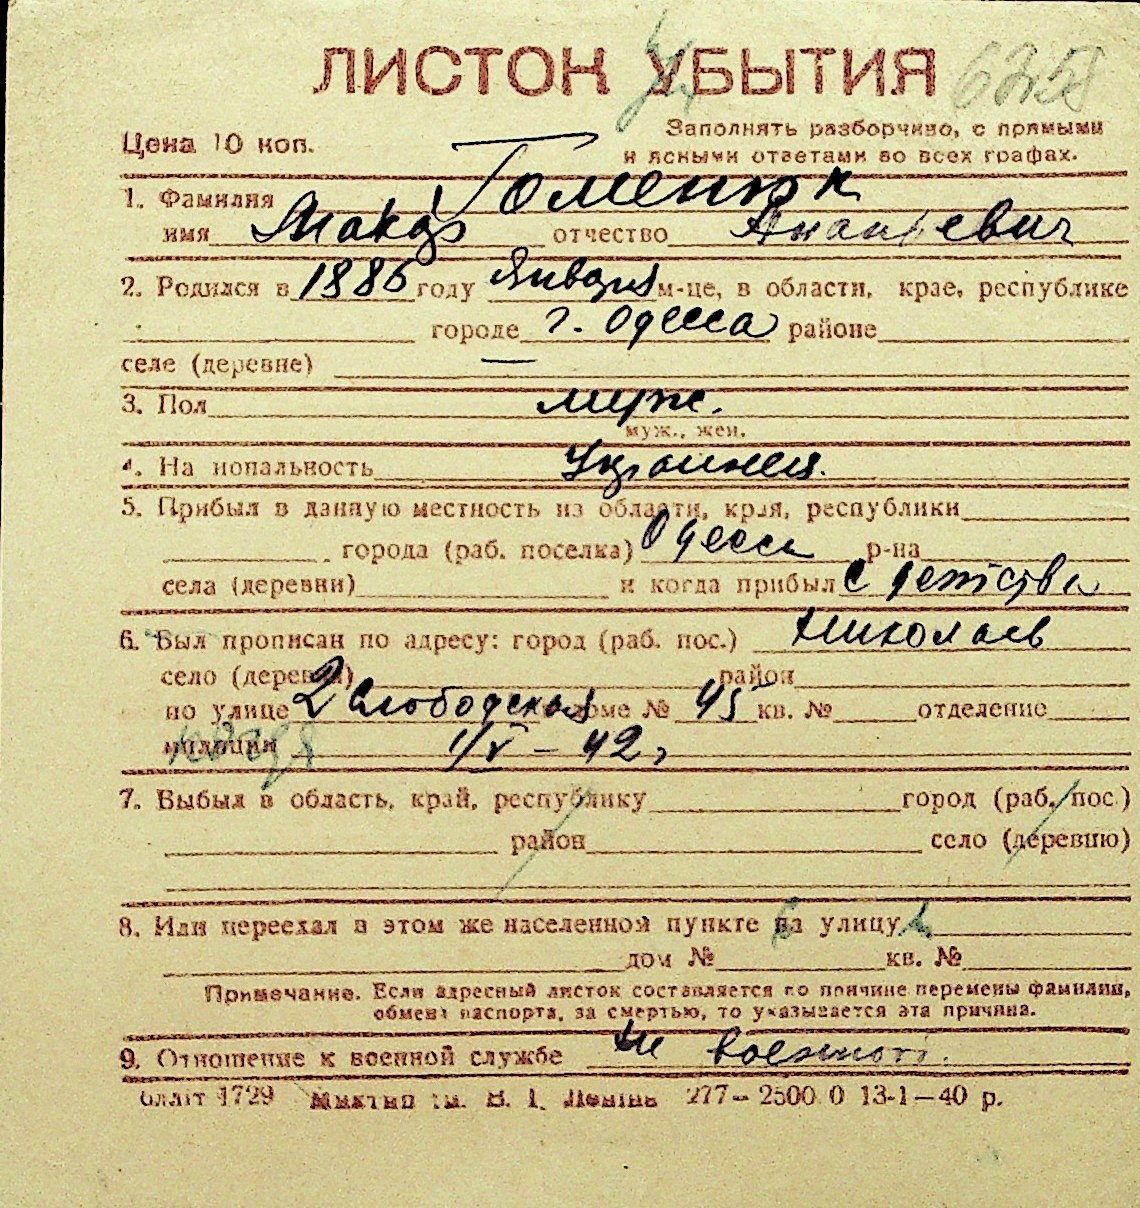 ЛИСТОК УБЫТИЯ
Цена 10 коп.
Заполнять разборчиво, с прямыми
и ясными ответами во всех графах.
1. Фамилия Гоменюк
имя Макар отчество Ананьевич
2. Родился в 1886 году января м-це, в области, крае, республике
городе г. Одесса районе
селе (деревне) —
3. Пол муж.
муж., жен.
4. Национальность
5. Прибыл в данную местность из области, края, республики
города (раб. поселка) Одесса р-на
села (деревни) и когда прибыл с детства
6. Был прописан по адресу: город (раб. пос.) Николаев
село (деревня) район
по улице 2 Слободская доме № 45 кв. № отделение
милиции 1/V – 42 г
7. Выбыл в область, край, республику город (раб. пос.)
район село (деревню)
8. Или переехал в этом же населенном пункте на улицу
дом № кв. №
Примечание. Если адресный листок составляется по причине перемены фамилии,
обмена паспорта, за смертью, то указывается эта причина.
9. Отношение к военной службе не военнооб.
1729 ім. В. І. Леніна 277–2500 0 13-1–40 р.